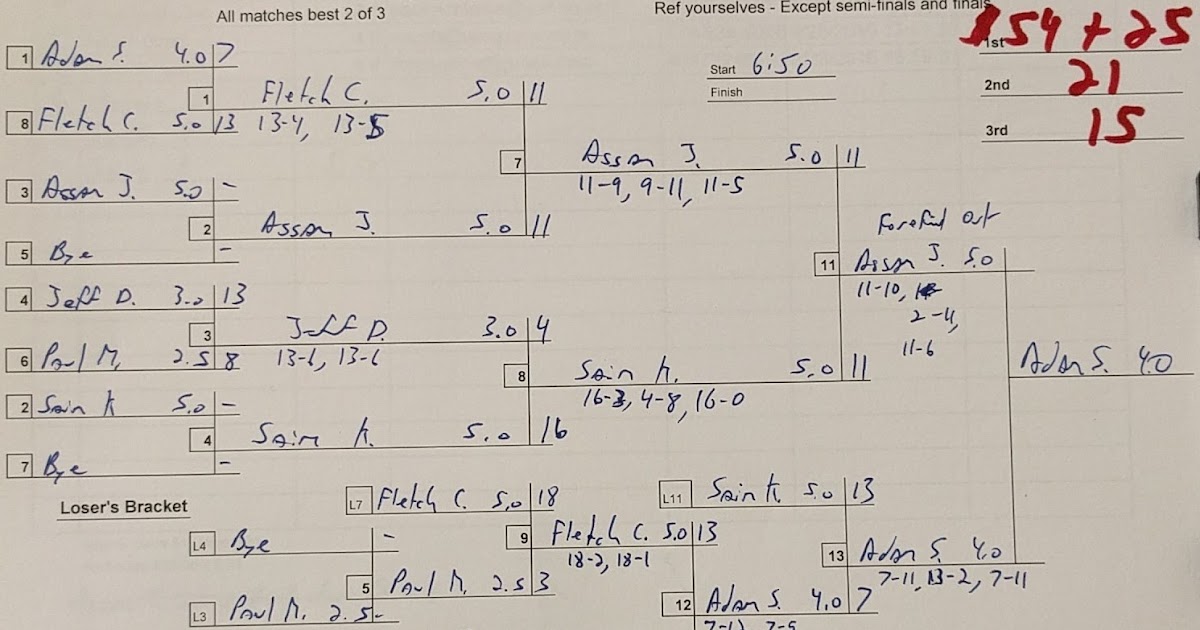 All matches best 2 of 3
Ref yourselves - Except semi-finals and finals
1st $54 + 25
2nd 21
3rd 15
Start 6:50
Finish
1 Adam S. 4.0 7
8 Fletch C. 5.0 13
1 Fletch C. 5.0 11
13-4, 13-5
3 Assan J. 5.0 -
5 Bye -
2 Assan J. 5.0 11
7 Assan J. 5.0 11
11-9, 9-11, 11-5
4 Jeff D. 3.0 13
6 Paul M. 2.5 8
3 Jeff D. 3.0 4
13-6, 13-6
2 Sain K 5.0 -
7 Bye -
4 Sain K. 5.0 16
8 Sain K. 5.0 11
16-3, 4-8, 16-0
Forefind out
11 Assan J. 5.0
11-10,
2-4,
11-6
Adam S. 4.0
Loser's Bracket
L4 Bye -
L3 Paul M. 2.5 -
L7 Fletch C. 5.0 18
5 Paul M. 2.5 3
9 Fletch C. 5.0 13
18-2, 18-1
L11 Sain K. 5.0 13
12 Adam S. 4.0 7
13 Adam S. 4.0
7-11, 13-2, 7-11